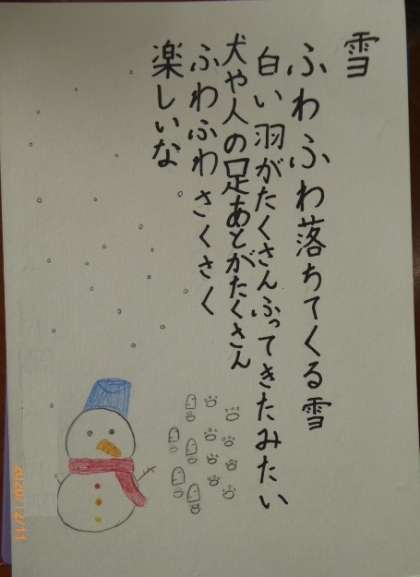 雪
ふわふわ落ちてくる雪
白い羽がたくさんふってきたみたい
犬や人の足あとがたくさん
ふわふわさくさく
楽しいな
2020/12/11